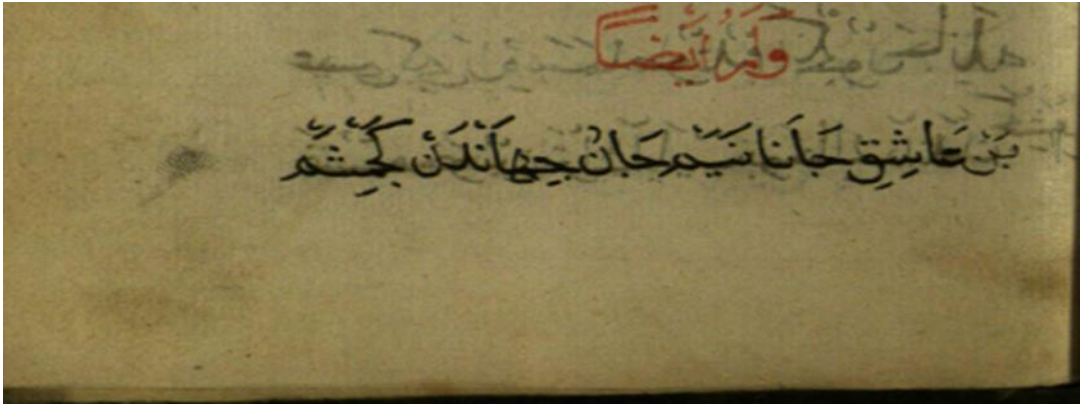 وَلَهُ اَيْضًا
بَنْ عَاشِقِ جَانَا نَيَمْ جَانُ جِهَانْدَنْ كَچْمِشَمْ